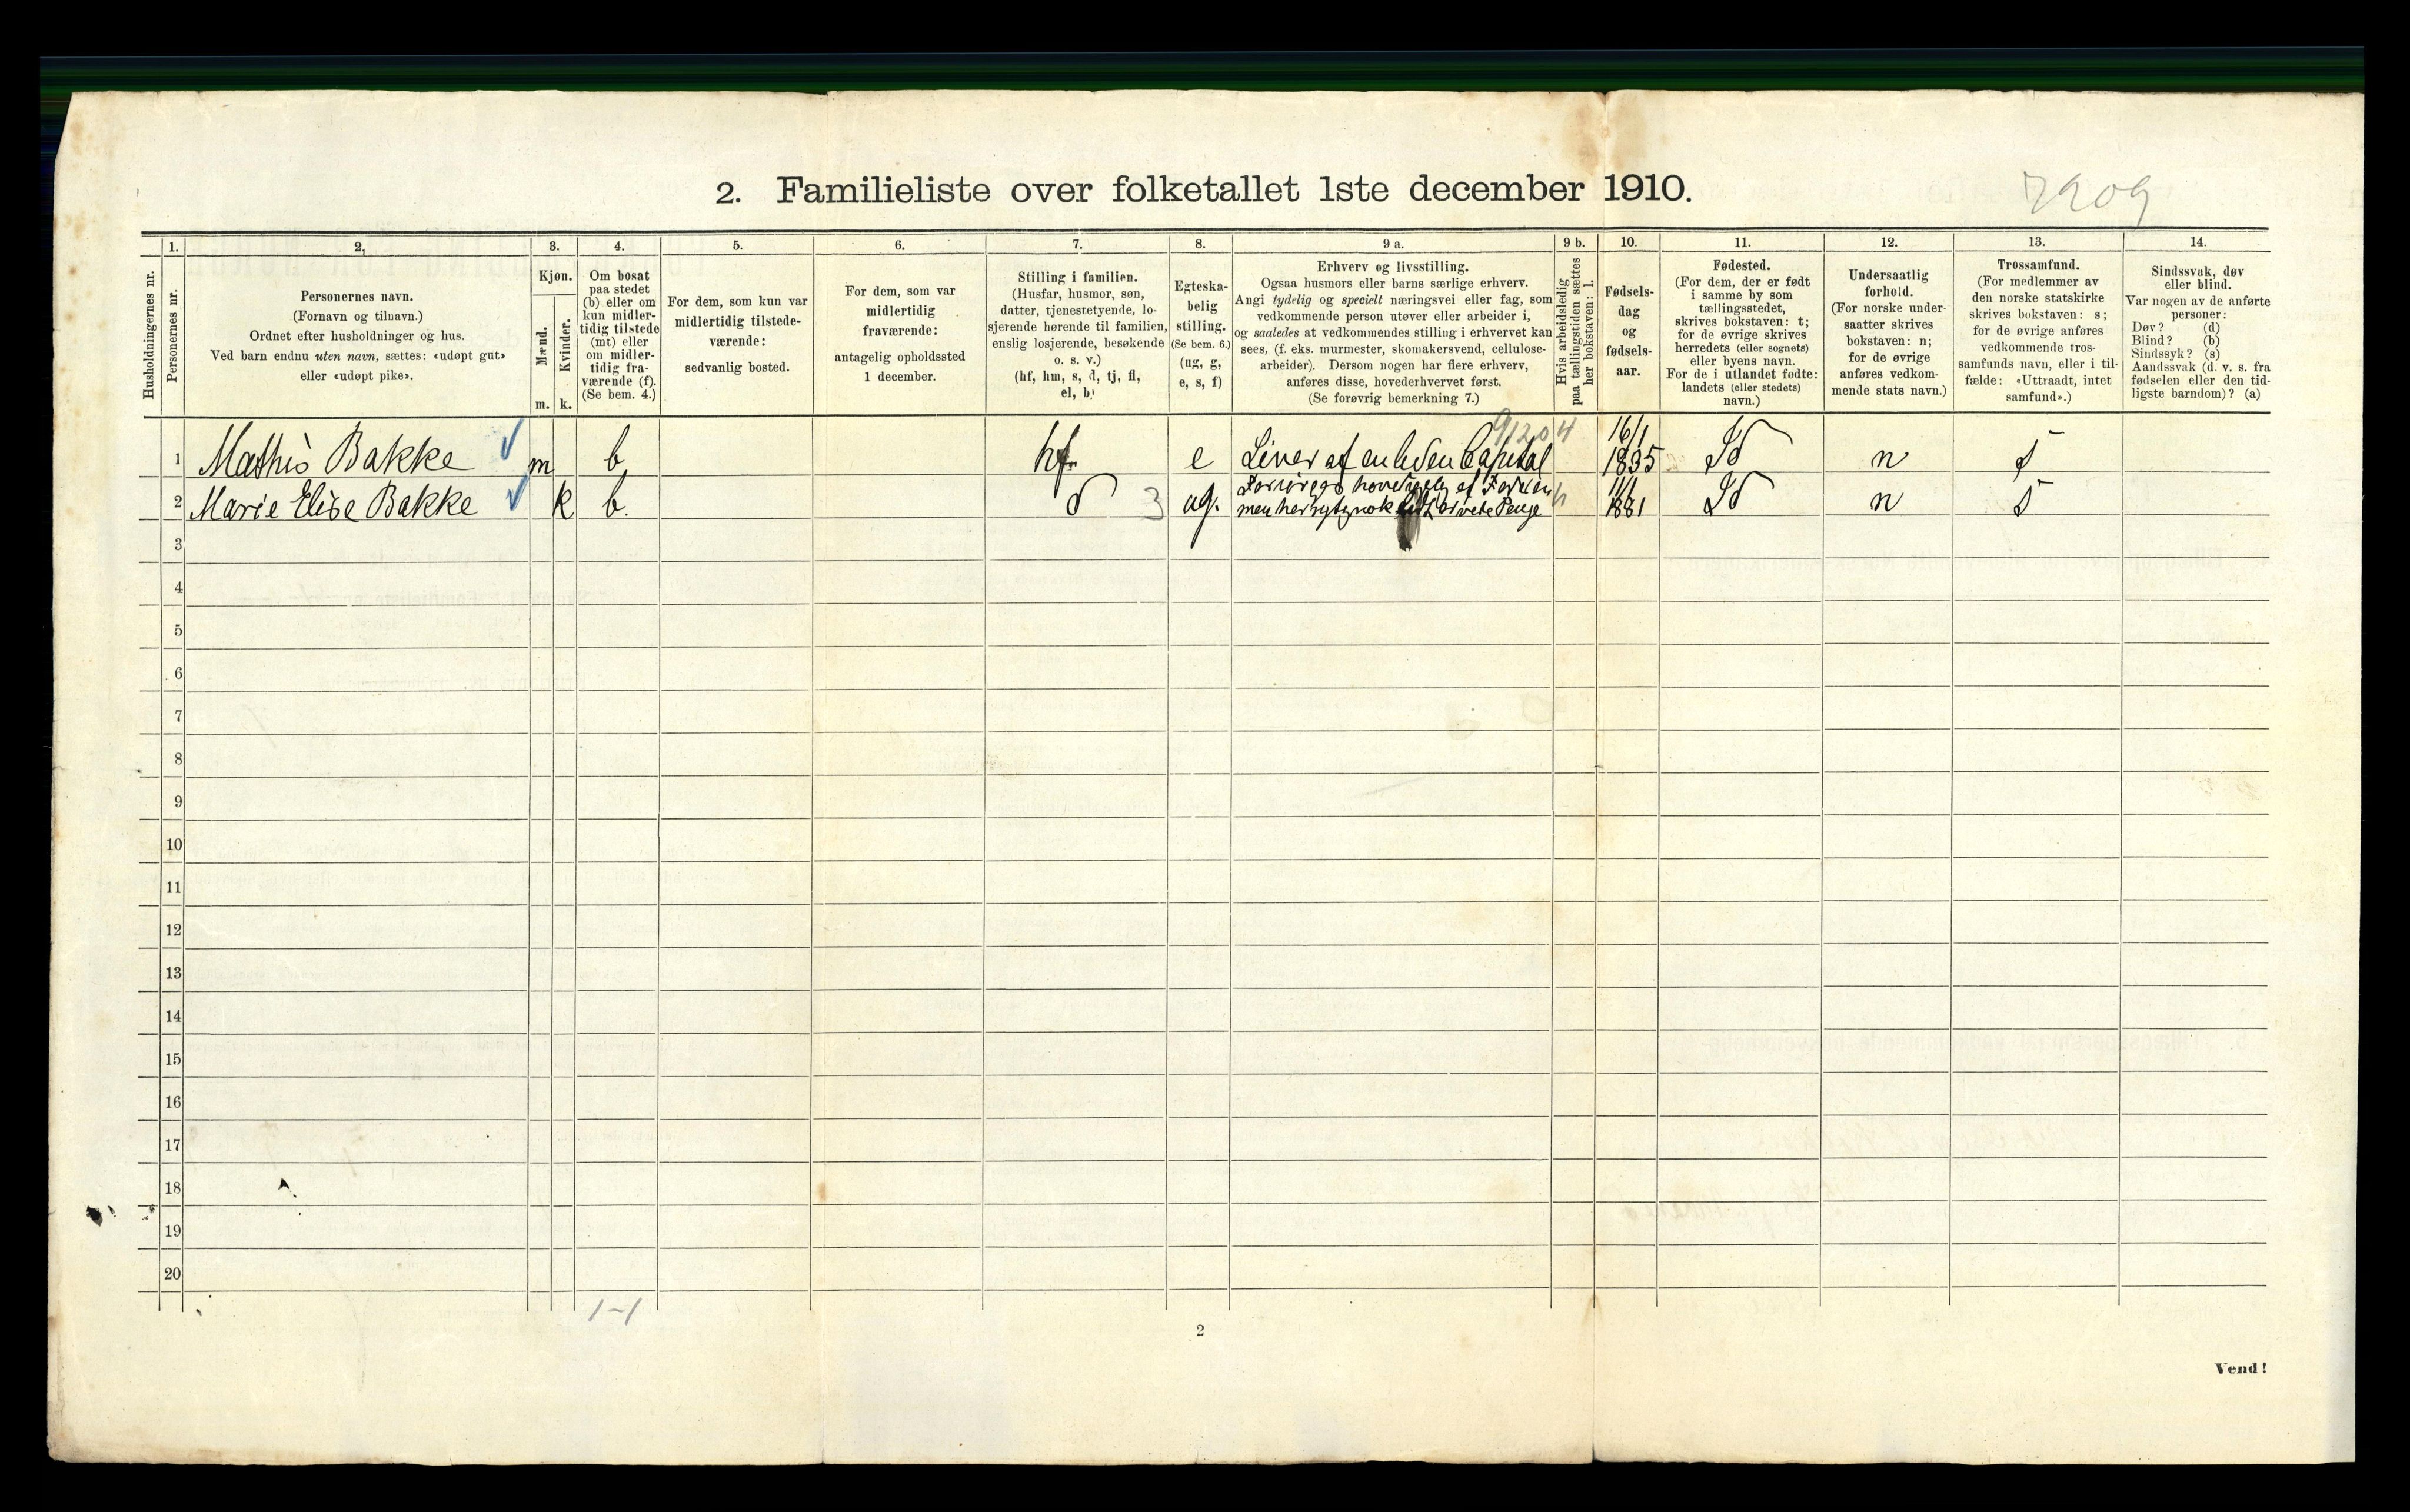 2. Familieliste over folketallet 1ste december 1910.
7909
1.
2.
3.
4.
5.
6.
7.
8.
9 a.
9 b.
10.
11.
12.
13.
14.
Husholdningernes nr.
Personernes nr.
Personernes navn.
(Fornavn og tilnavn.)
Ordnet efter husholdninger og hus.
Ved barn endnu uten navn, sættes: «udøpt gut»
eller «udøpt pike».
Kjøn.
Mænd.
Kvinder.
m.
k.
Om bosat
paa stedet
(b) eller om
kun midler-
tidig tilstede
(mt) eller
om midler-
tidig fra-
værende (f).
(Se bem. 4.)
For dem, som kun var
midlertidig tilstede-
værende:
sedvanlig bosted.
For dem, som var
midlertidig
fraværende:
antagelig opholdssted
1 december.
Stilling i familien.
(Husfar, husmor, søn,
datter, tjenestetyende, lo-
sjerende hørende til familien,
enslig losjerende, besøkende
o. s. v.)
(hf, hm, s, d, tj, fl,
el, b)
Egteska-
belig
stilling.
(Se bem. 6.)
(ug, g,
e, s, f)
Erhverv og livsstilling.
Ogsaa husmors eller barns særlige erhverv.
Angi tydelig og specielt næringsvei eller fag, som
vedkommende person utøver eller arbeider i,
og saaledes at vedkommendes stilling i erhvervet kan
sees, (f. eks. murmester, skomakersvend, cellulose-
arbeider). Dersom nogen har flere erhverv,
anføres disse, hovederhvervet først.
(Se forøvrig bemerkning 7.)
Hvis arbeidsledig
paa tællingstiden sættes
her bokstaven: l.
Fødsels-
dag
og
fødsels-
aar.
Fødested.
(For dem, der er født
i samme by som
tællingsstedet,
skrives bokstaven: t;
for de øvrige skrives
herredets (eller sognets)
eller byens navn.
For de i utlandet fødte:
landets (eller stedets)
navn.)
Undersaatlig
forhold.
(For norske under-
saatter skrives
bokstaven: n;
for de øvrige
anføres vedkom-
mende stats navn.)
Trossamfund.
(For medlemmer av
den norske statskirke
skrives bokstaven: s;
for de øvrige anføres
vedkommende tros-
samfunds navn, eller i til-
fælde: «Uttraadt, intet
samfund».)
Sindssvak, døv
eller blind.
Var nogen av de anførte
personer:
Døv? (d)
Blind? (b)
Sindssyk? (s)
Aandssvak (d. v. s. fra
fødselen eller den tid-
ligste barndom)? (a)
1 Mathis Bakke m b hf e Lever af en liden Capital 16/1 1835 Id n s
2 Marie Elise Bakke k b. d 3 ug. 11/1 1881 Id n s
3
4
5
6
7
8
9
10
11
12
13
14
15
16
17
18
19
20
1-1
2
Vend!